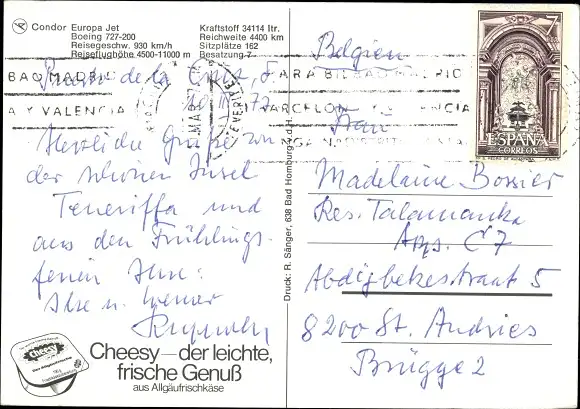 Condor Europa Jet
Boeing 727-200
Reisegeschw. 930 km/h
Reiseflughöhe 4500-11000 m
Kraftstoff 34114 ltr.
Reichweite 4400 km
Sitzplätze 162
Besatzung 7
de la Cruz
Herzliche Grüße von
der schönen Insel
Teneriffa und
aus den Frühlings-
ferien Ihre:
Ilse u. Werner
Cheesy
Cheesy—der leichte,
frische Genuß
aus Allgäufrischkäse
Druck: R. Sänger, 638 Bad Homburg v.d.H.
7
ESPAÑA
CORREOS
BAO MADRID
A Y VALENCIA
Belgien
Frau
Madelaine Bossier
Res. Talamanka
App. C7
Abdijbekestraat 5
8200 St. Andries
Brügge 2